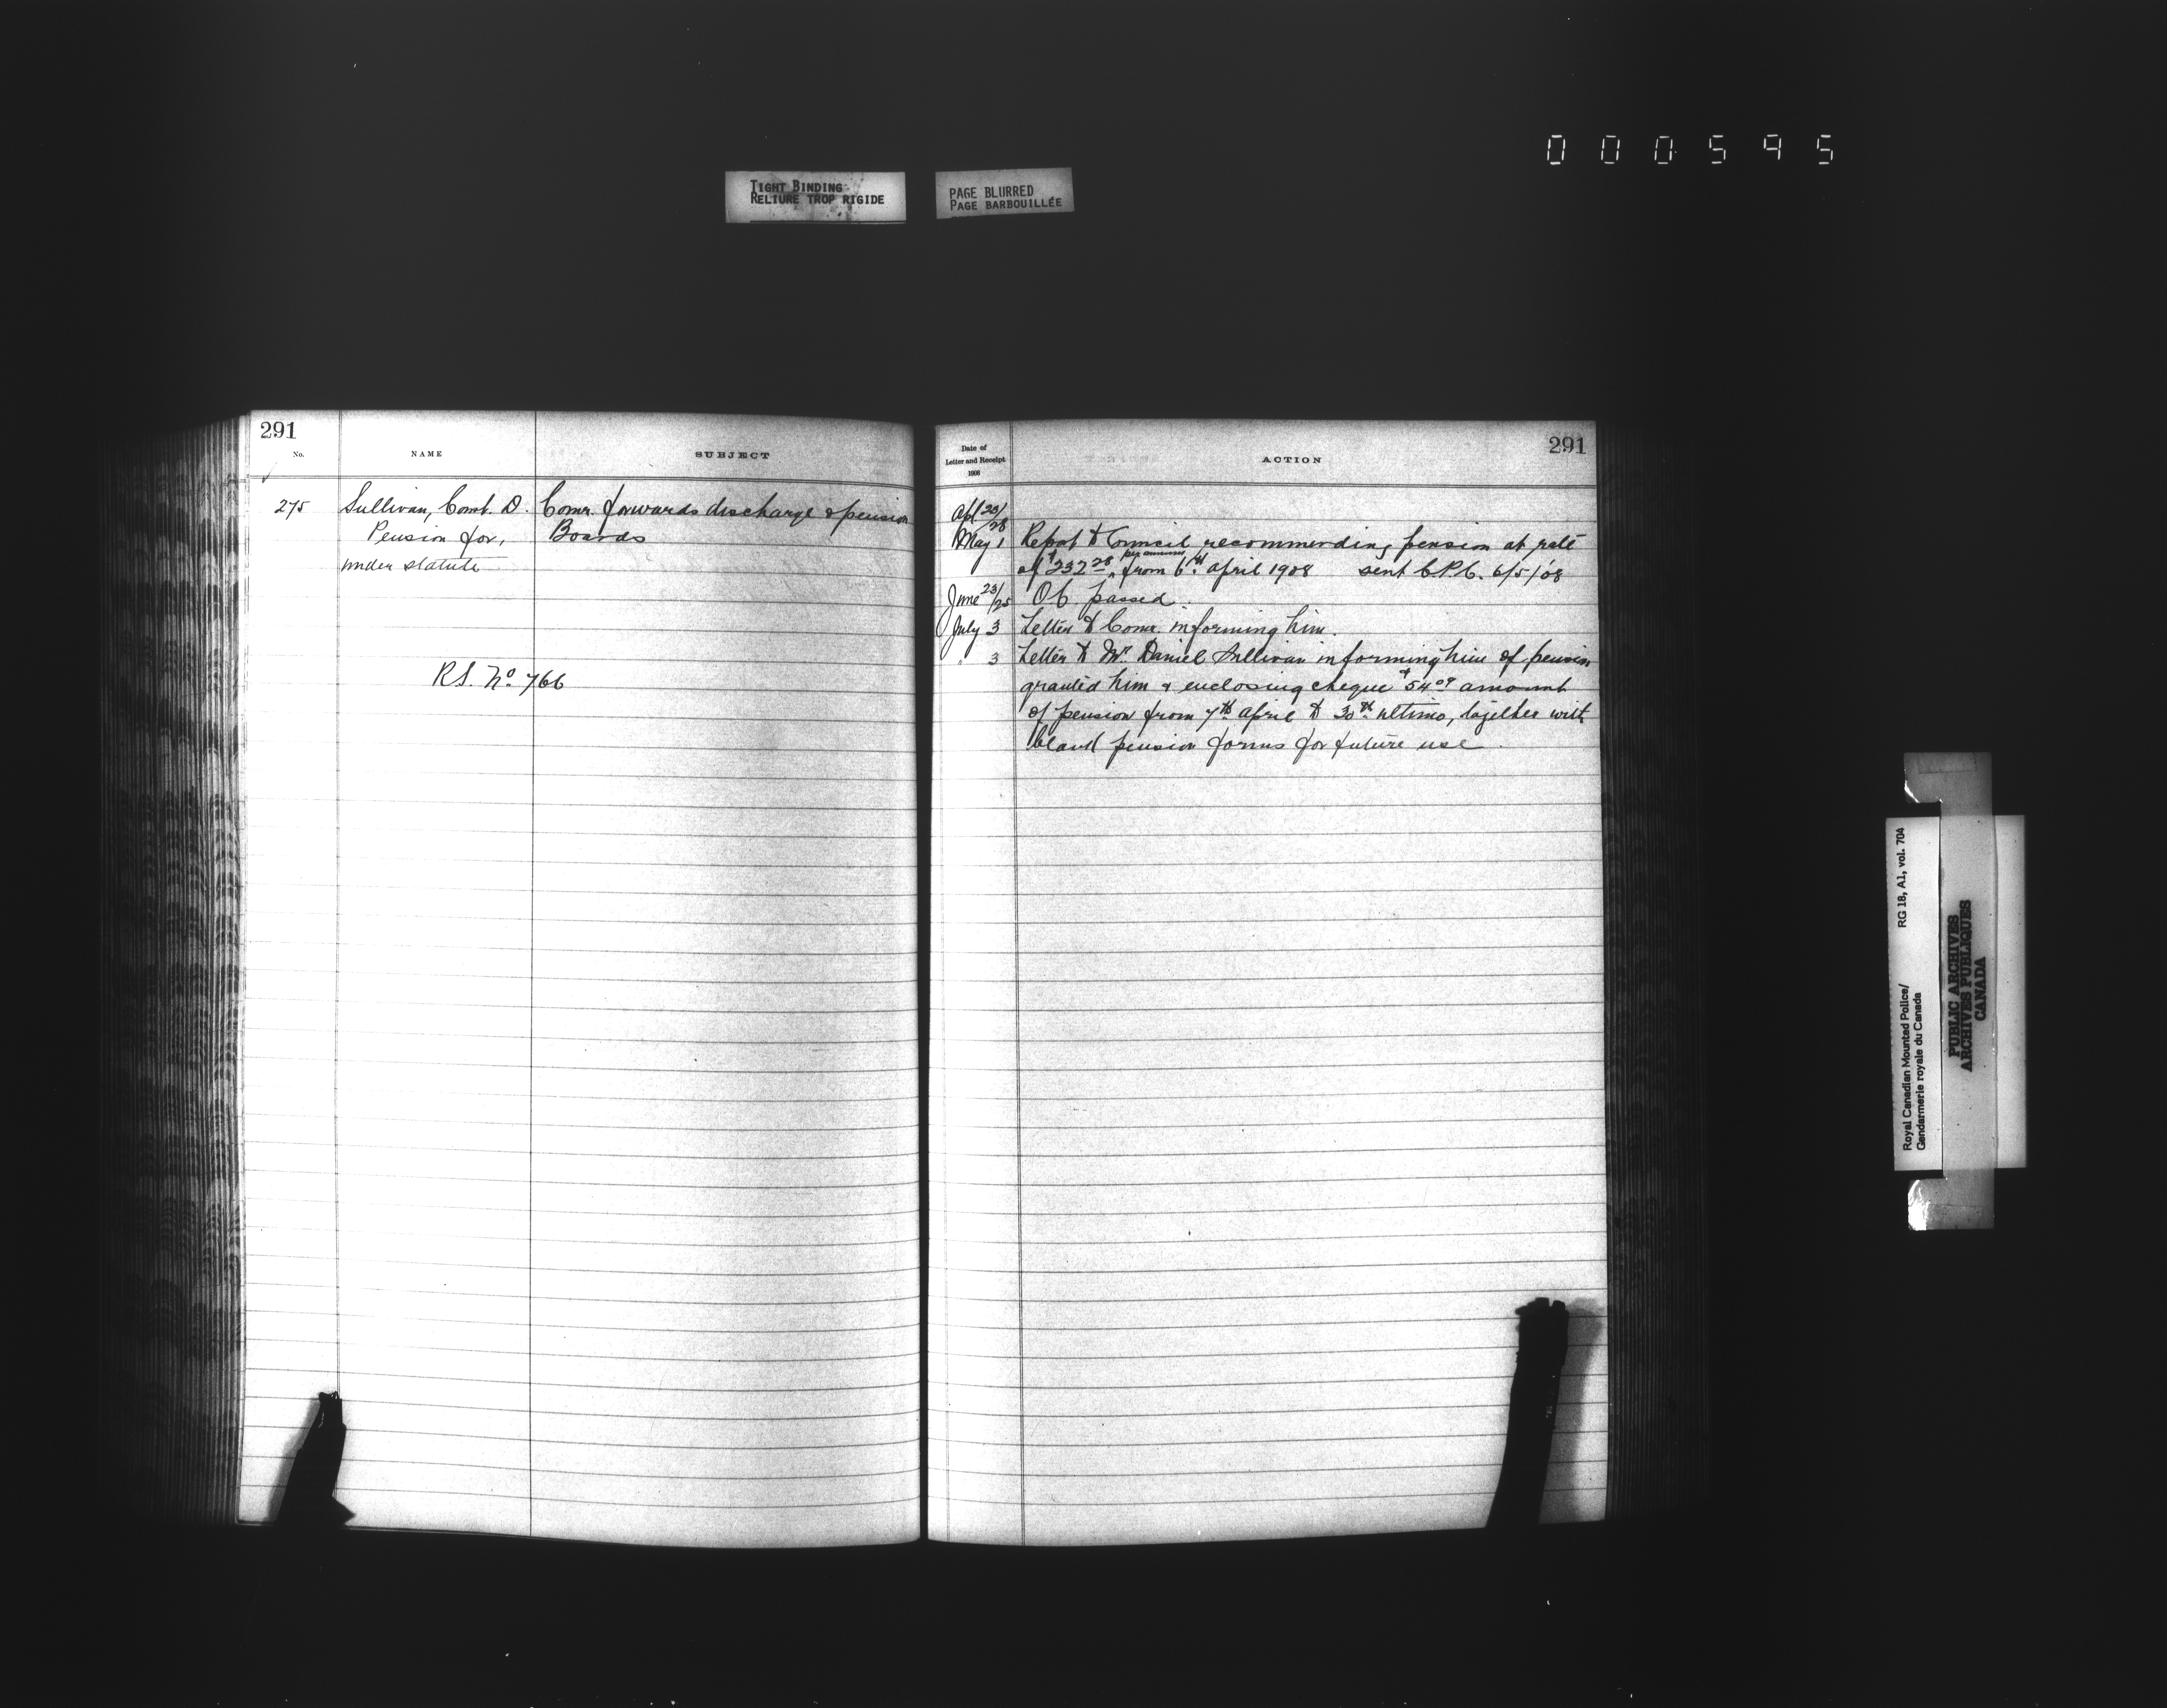 000595
TIGHT BINDING
RELIURE TROP RIGIDE
PAGE BLURRED
PAGE BARBOUILLÉE
291
No.
NAME
SUBJECT
275
Sullivan, Const. D.
Pension for,
under statute
Comr. forwards discharge & pension
Boards
R.S. No. 766
291
Date of
Letter and Receipt
1908
ACTION
Apl 23/28
May 1 Report to Council recommending pension at rate
of $232.28 per annum from 6th April 1908 sent C.P.C. 6/5/08
June 23/25 OC passed.
July 3 Letter to Comr. informing him.
" 3 Letter to Mr. Daniel Sullivan informing him of pension
granted him & enclosing cheque $54.09 amount
of pension from 7th April to 30th ultimo, together with
blank pension forms for future use.
Royal Canadian Mounted Police/
Gendarmerie royale du Canada
RG 18, A1, vol. 704
PUBLIC ARCHIVES
ARCHIVES PUBLIQUES
CANADA